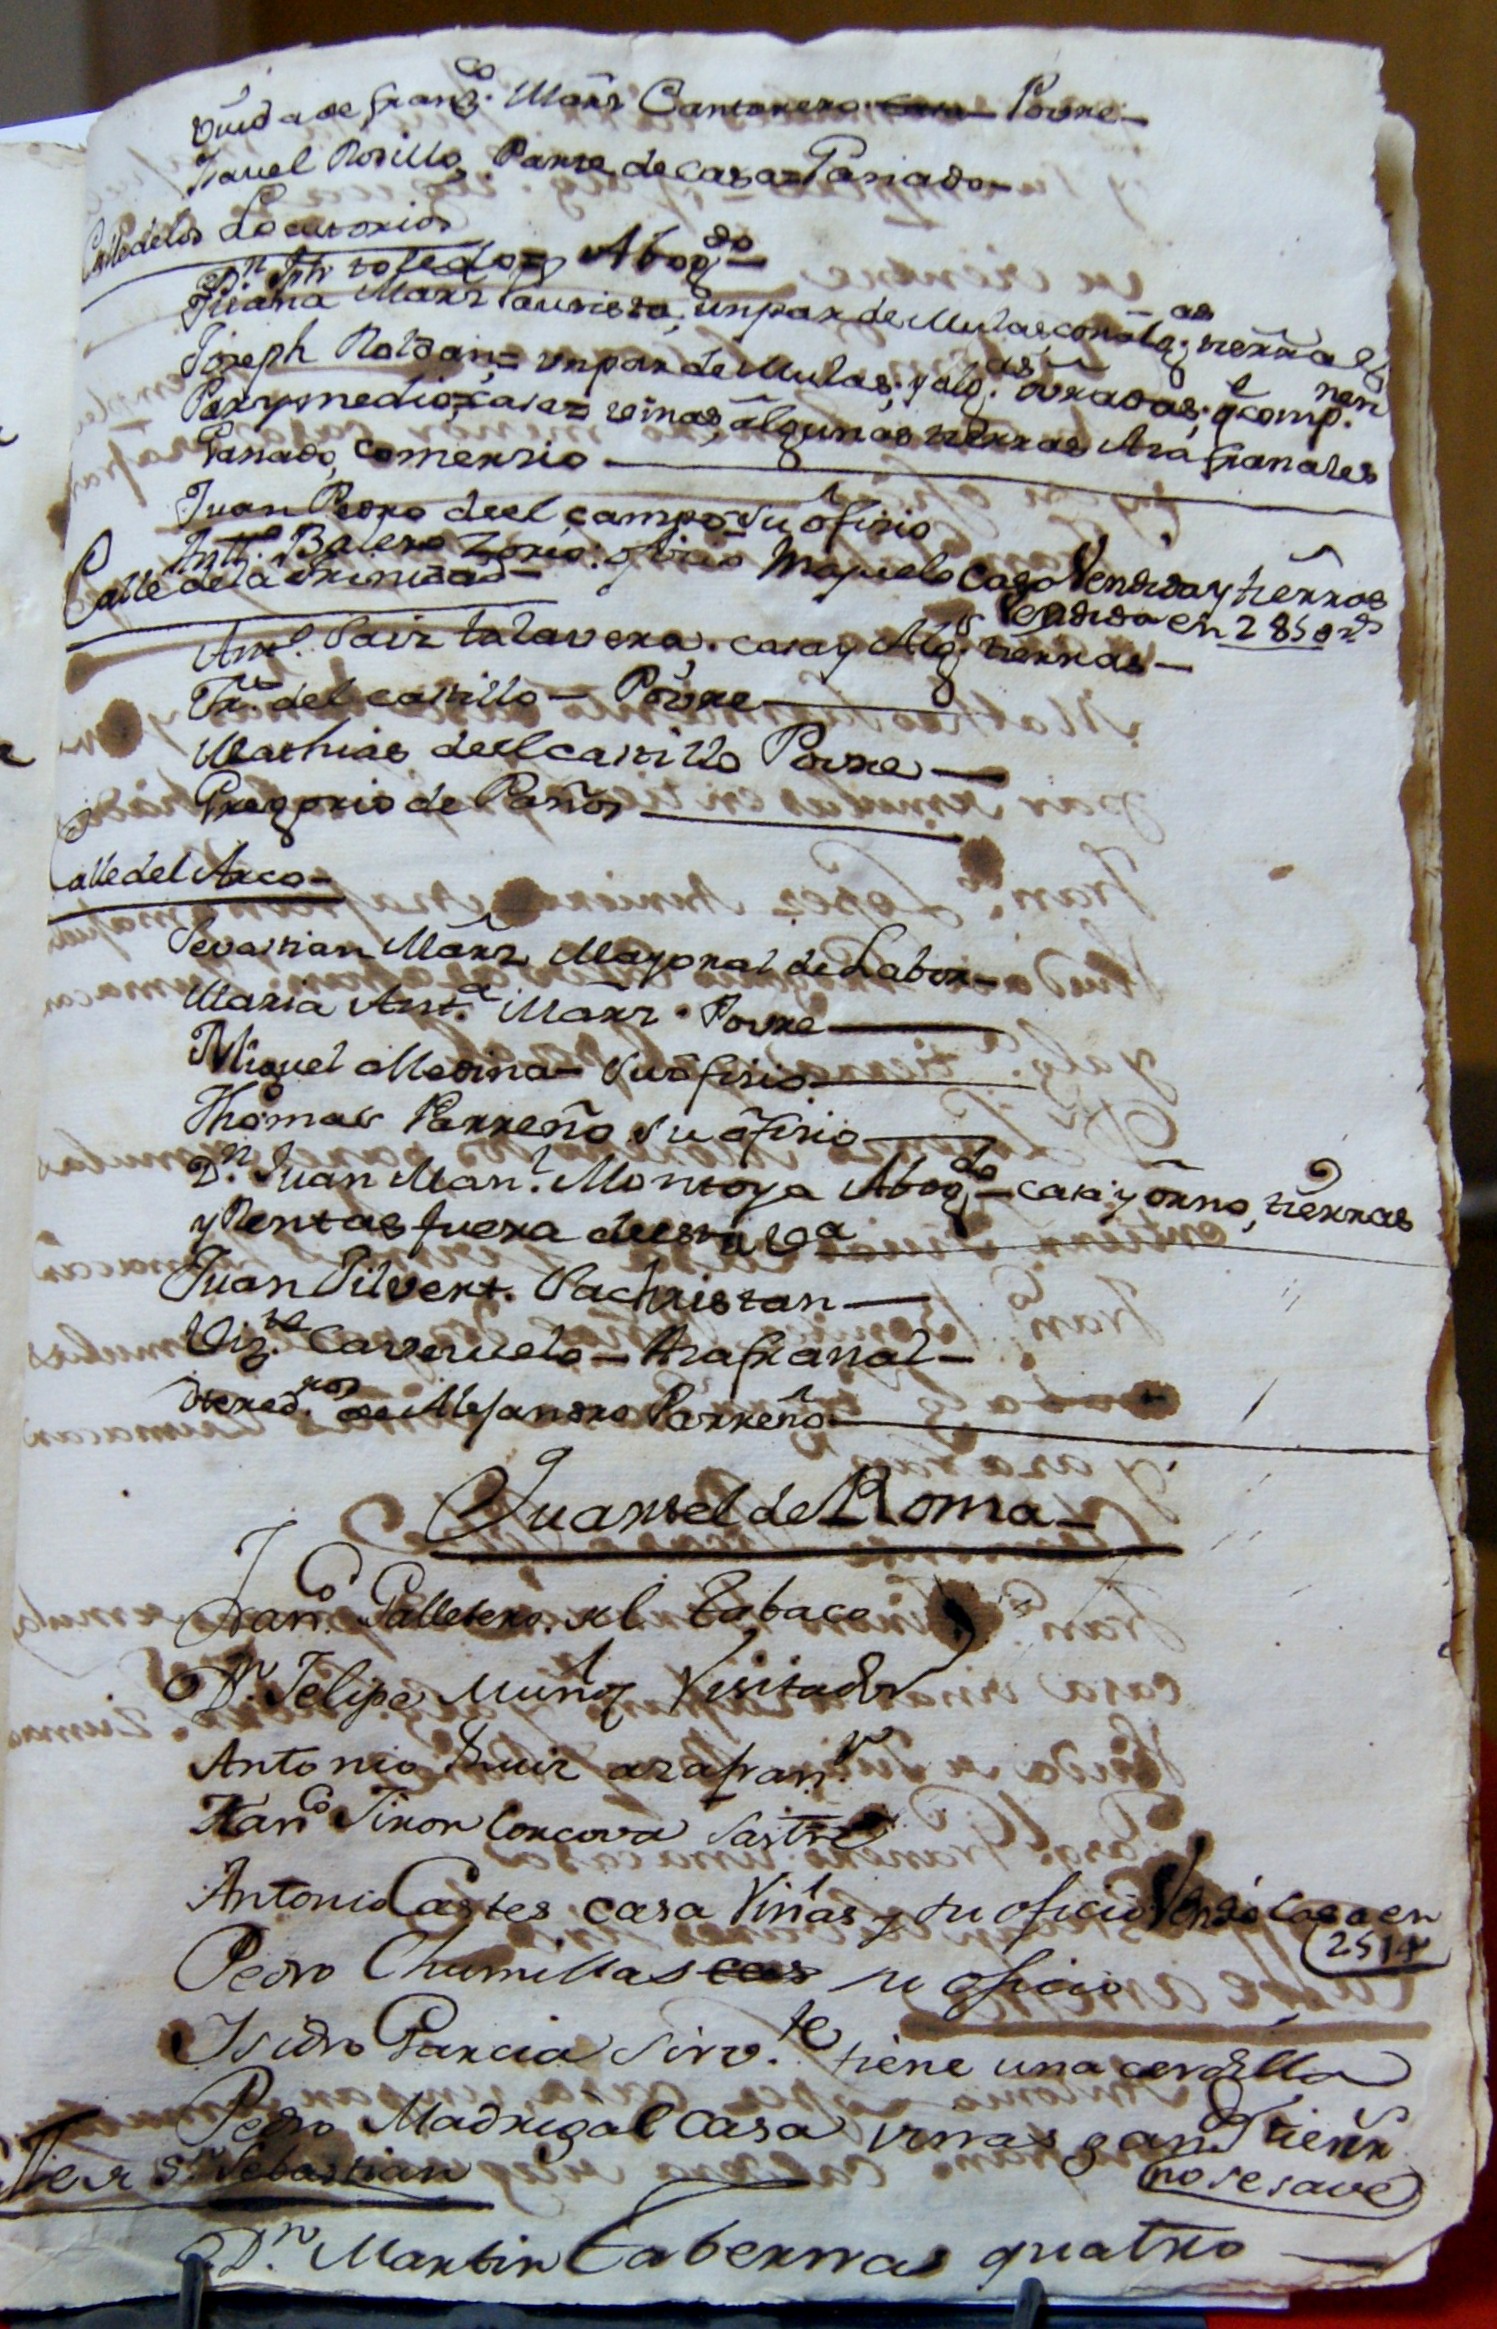 Viuda de Franco. Marz Cantarero Povre
Isavel Rosillo, Parte de casa Ganado
Calle delos Locutorios
Dn Jph toledo Abogdo
Juana Marz Bautista, un par de Mulas con algas tierras
Joseph Roldan = un par de Mulas, y algas ovradas, qe comp.nen
Par y medio, casa = vinas, algunas tierras Azafranales
Ganado, comersio
Juan Pedro deel campo su ofisio
Antto. Balero Zorio: ofisio Majuelo casa Vendida y tierras
Vendida en 2850 rs
Calle dela trinidad
Antto. Saiz talavera. casa y Alg.s tierras
Fr. del castillo — Povre
Mathias deel castillo Povre
Gregorio de Paños
Calle del Arco
Sevastian Marz Mayoral de Labor
Maria Anta. Marz. Povre
Miguel Medina su ofisio
Thomas Parreño su ofisio
Dn. Juan Manl. Montoya Abogdo casa y orno, tierras
y Rentas fuera deesta Va
Juan Silvert. Sachristan
Vizte Casteruelo — Azafranal
Hered.ros de Alejandro Parreño
Quartel de Roma
Franco. Palletero. el Tabaco
Dn. Felipe Muñoz Visitador
Antonio Ruiz azafran.l
Franco Jiron Corcova Sastre
Antonio Castes casa Viñas y su oficio Vendió Casa en
2514
Pedro Chumillas su oficio
Isidro Garcia Sirv.te tiene una cerdilla
Pedro Madrigal casa vinas gando tierr
no se save
Sn. Sebastian
Dn. Martin Tabernas quatro